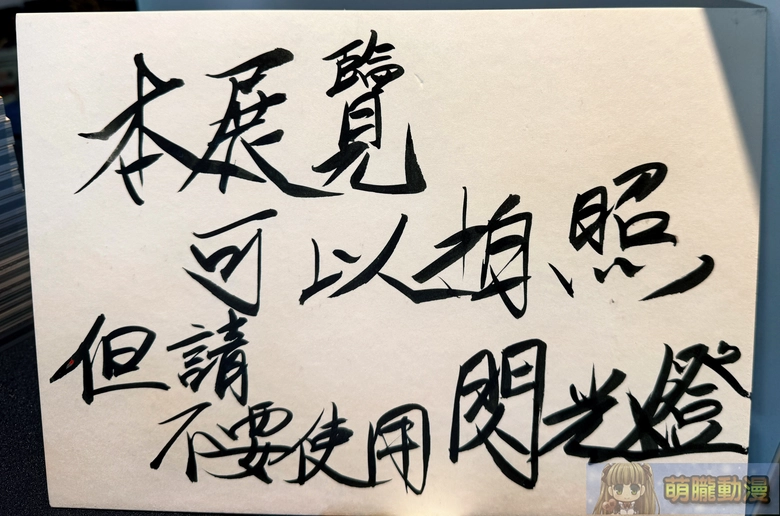 本展覽
可以拍照
但請
不要使用閃光燈
萌朧動漫